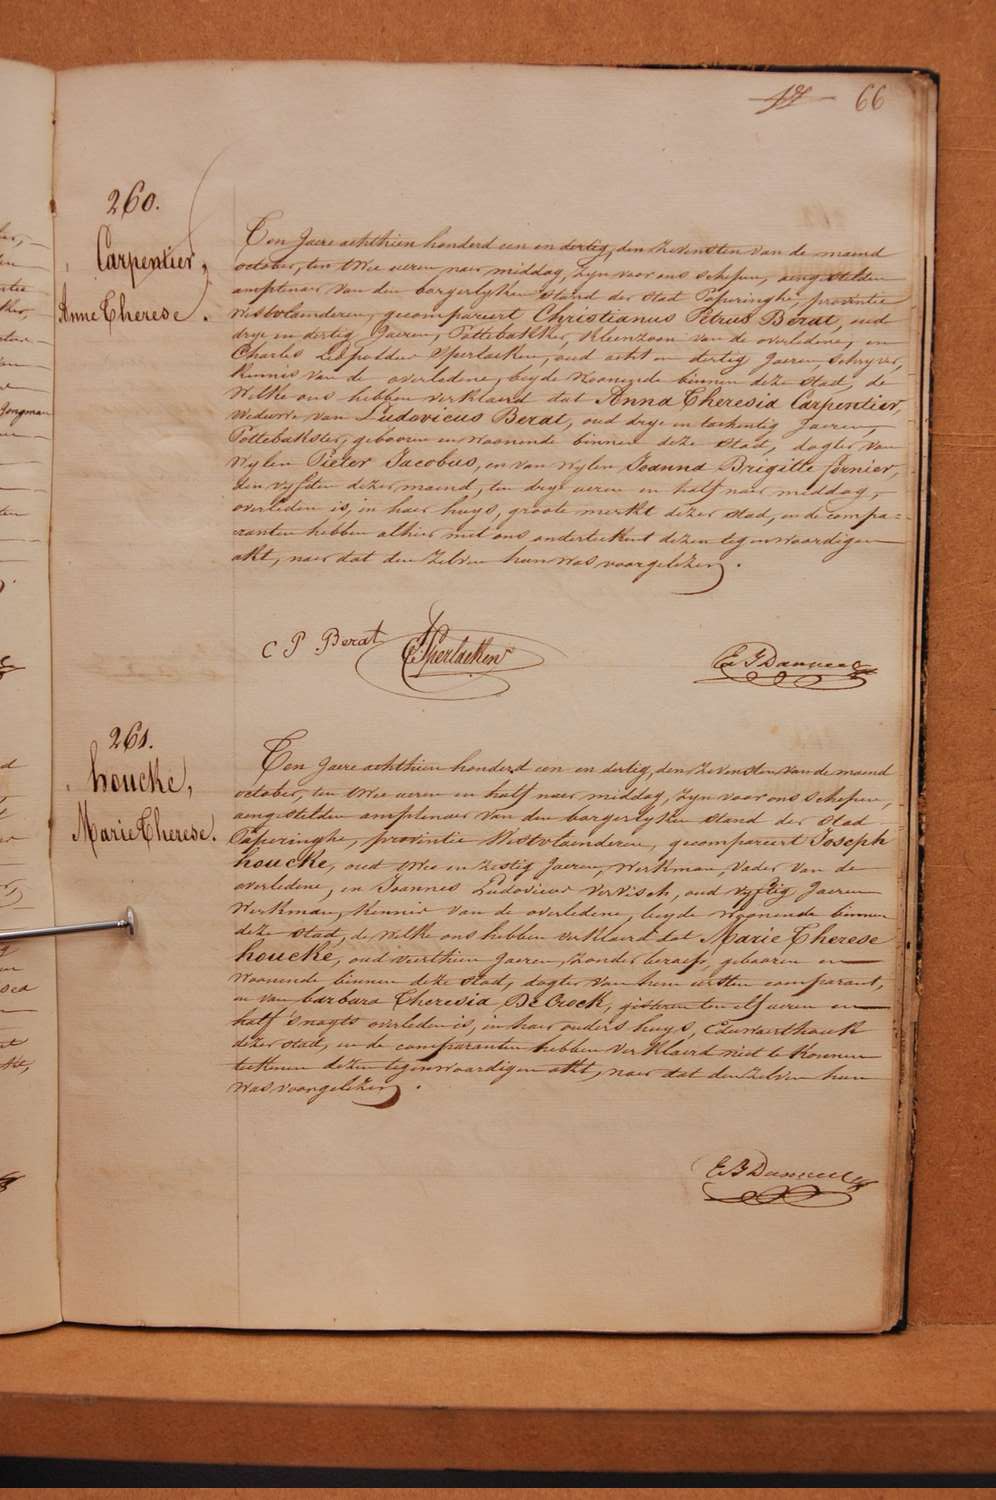 66
260.
Carpentier,
Anne Therese.
Ten Jaere achthien honderd een en dertig, den zevensten van de maend
october, ten twee ueren naer middag, zyn voor ons schepen, aengestelden
amptenaer van den borgerlyken stand der stad Poperinghe, provintie
Westvlaenderen, gecompareert Christianus Petrus Berat, oud
drye en dertig Jaeren, Pottebakker, kleinzoon van de overledene, en
Charles Léopoldus Sperlaeken, oud acht en dertig Jaeren, schryver,
kennis van de overledene, beyde woonende binnen deze stad, de
welke ons hebben verklaerd dat Anna Theresia Carpentier,
weduwe van Ludovicus Berat, oud drye en tachentig Jaeren,
Pottebakster, gebooren en woonende binnen deze stad, dogter van
wylen Pieter Jacobus, en van wylen Joanna Brigitte fornier,
den vyfden dezer maend, ten drye ueren en half naer middag,
overleden is, in haer huys, groote merkt dezer stad, en de compa=
ranten hebben alhier met ons onderteekent dezen tegenwoordigen
akt, naer dat den zelven hun was voorgelezen.
C P Berat C. Sperlaeken
261.
houcke,
Marie Therese.
Ten Jaere achthien honderd een en dertig, den zevensten van de maend
october, ten twee ueren en half naer middag, zyn voor ons schepen,
aengestelden amptenaer van den borgerlyken stand der stad
Poperinghe, provintie Westvlaenderen, gecompareert Joseph
houcke, oud twee en zestig Jaeren, werkman, vader van de
overledene, en Joannes Ludovicus Vervisch, oud vyftig Jaeren
werkman, kennis van de overledene, beyde woonende binnen
deze stad, de welke ons hebben verklaerd dat Marie Therese
houcke, oud veerthien Jaeren, zonder beroep, gebooren en
woonende binnen deze stad, dogter van hem eersten comparant,
en van barbara Theresia De Crock, gisteren ten elf ueren en
half 's nagts overleden is, in haer ouders huys, Eduwaerthouk
dezer stad, en de comparanten hebben verklaerd niet te konnen
teekenen dezen tegenwoordigen akt, naer dat den zelven hun
was voorgelezen.